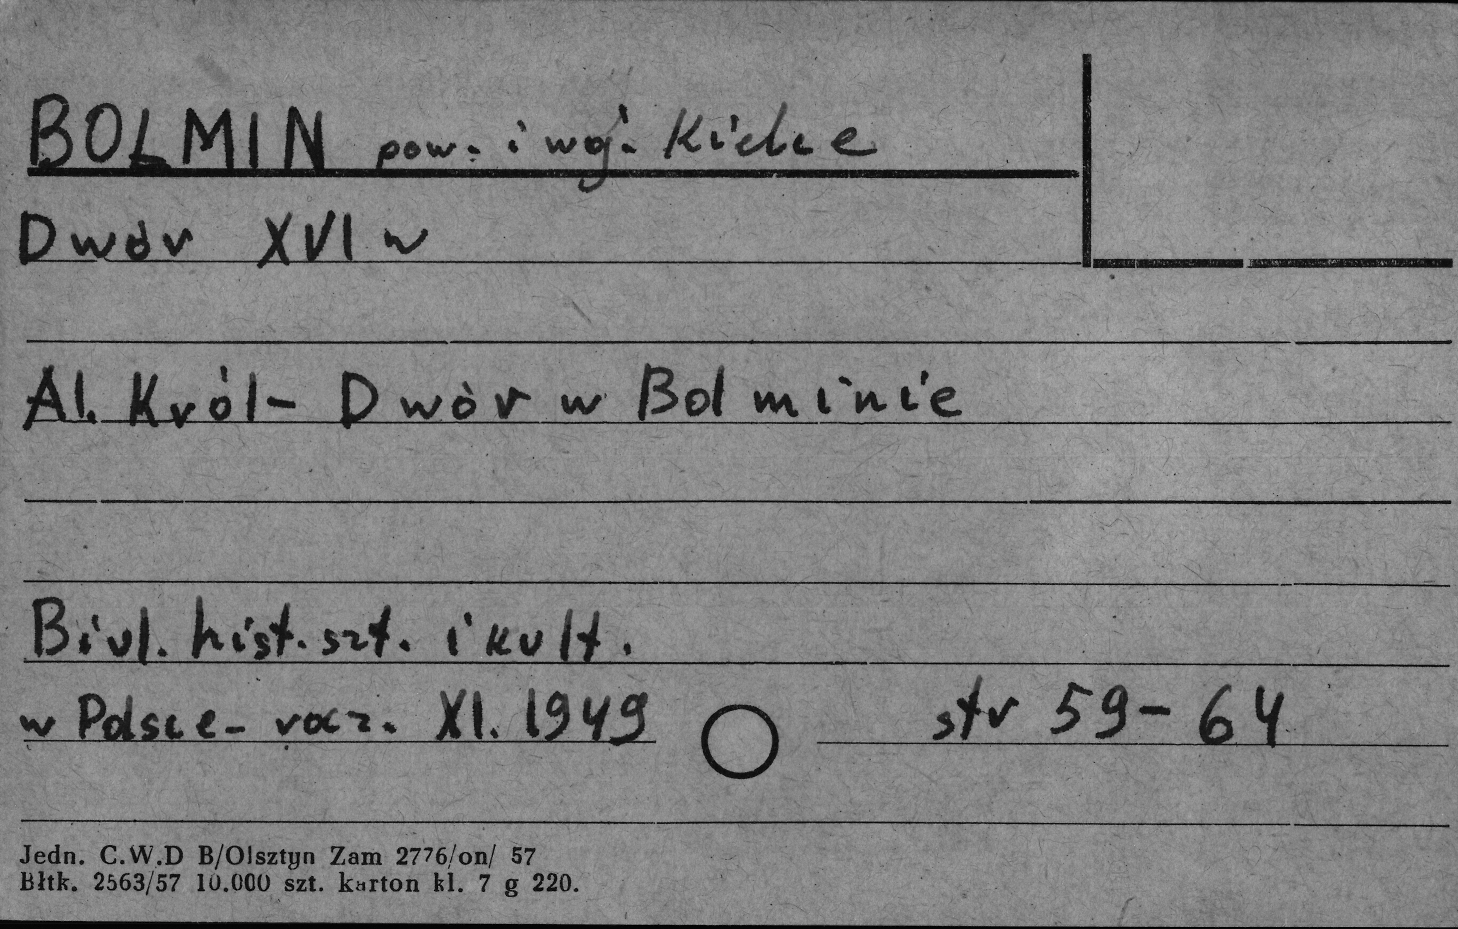 BOLMIN pow. i woj. Kielce
Dwór XVI w
Al. Król - Dwór w Bolminie
Biul. hist. szt. i kult.
w Polsce - rocz. XI. 1949 str 59-64
Jedn. C.W.D B/Olsztyn Zam 2776/on/ 57
Błtk. 2563/57 10.000 szt. karton kl. 7 g 220.